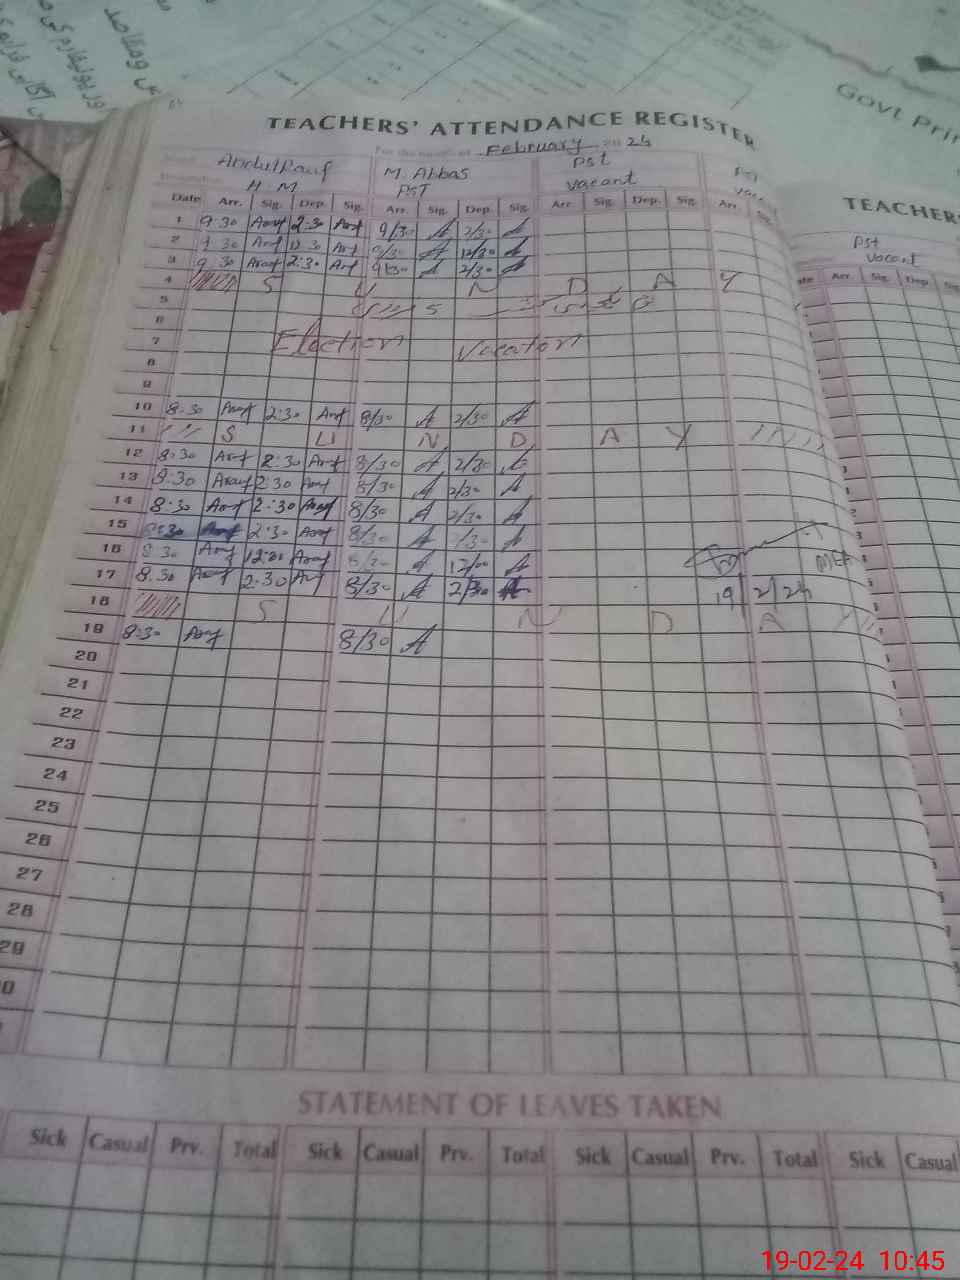 Govt Pri
TEACHERS' ATTENDANCE REGISTER
For the month of February 2024
AbdulRauf M. Abbas Pst Pst
H.M PST Vacant
Date Arr. Sig. Dep. Sig. Arr. Sig. Dep. Sig. Arr. Sig. Dep. Sig. Arr. Sig.
1 9:30 Arauf 2:30 Arauf 9/30 A 2/30 A
2 9 30 Arauf 12 30 Arauf 9/30 A 12/30 A
3 9 30 Arauf 2:30 Arauf 9/30 A 2/30 A
4 S U N D A Y
5
6
7 Election Vacation
8
9
10 8:30 Arauf 2:30 Arauf 8/30 A 2/30 A
11 S U N D A Y
12 8:30 Arauf 2:30 Arauf 8/30 A 2/30 A
13 8:30 Arauf 2:30 Arauf 8/30 A 2/30 A
14 8:30 Arauf 2:30 Arauf 8/30 A 2/30 A
15 8:30 Arauf 2:30 Arauf 8/30 A 2/30 A
16 8 30 Arauf 12:00 Arauf 8/30 A 12/00 A
MEA
17 8.30 Arauf 2:30 Arauf 8/30 A 2/30 A
19/2/24
18 S U N D A Y
19 8:30 Arauf 8/30 A
20
21
22
23
24
25
26
27
28
29
0
STATEMENT OF LEAVES TAKEN
Sick Casual Prv. Total Sick Casual Prv. Total Sick Casual Prv. Total Sick Casual
TEACHERS'
Pst
Vacant
Arr. Sig. Dep.
19-02-24 10:45